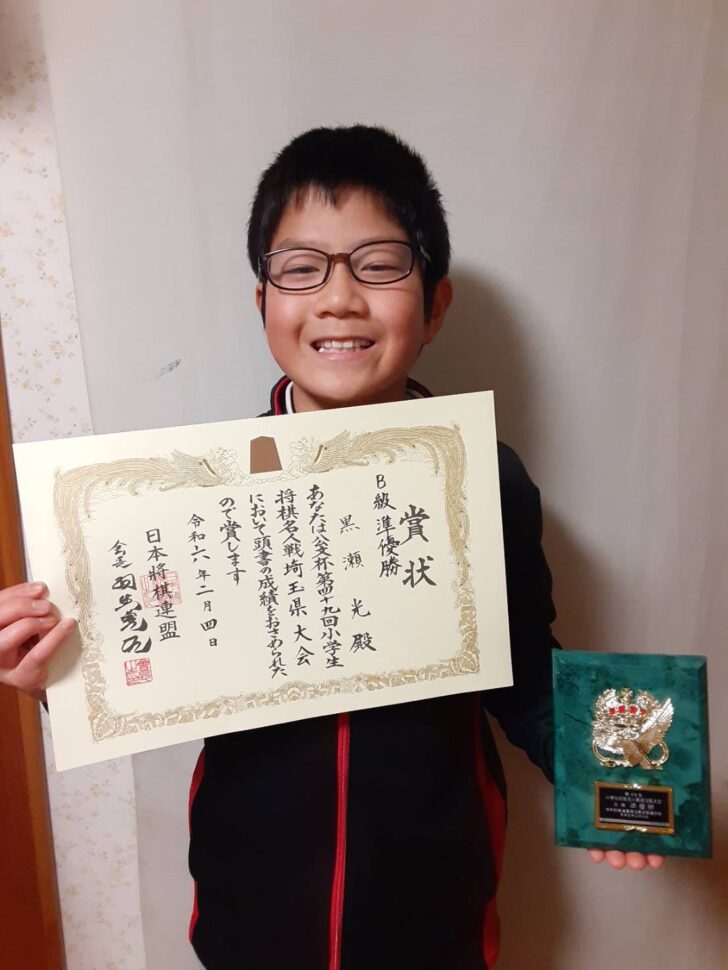 賞状
B級準優勝
黒瀬光殿
あなたは公文杯第四十九回小学生
将棋名人戦埼玉県大会
において頭書の成績をおさめられた
ので賞します
令和六年二月四日
日本将棋連盟
会長 羽生善治
準優勝